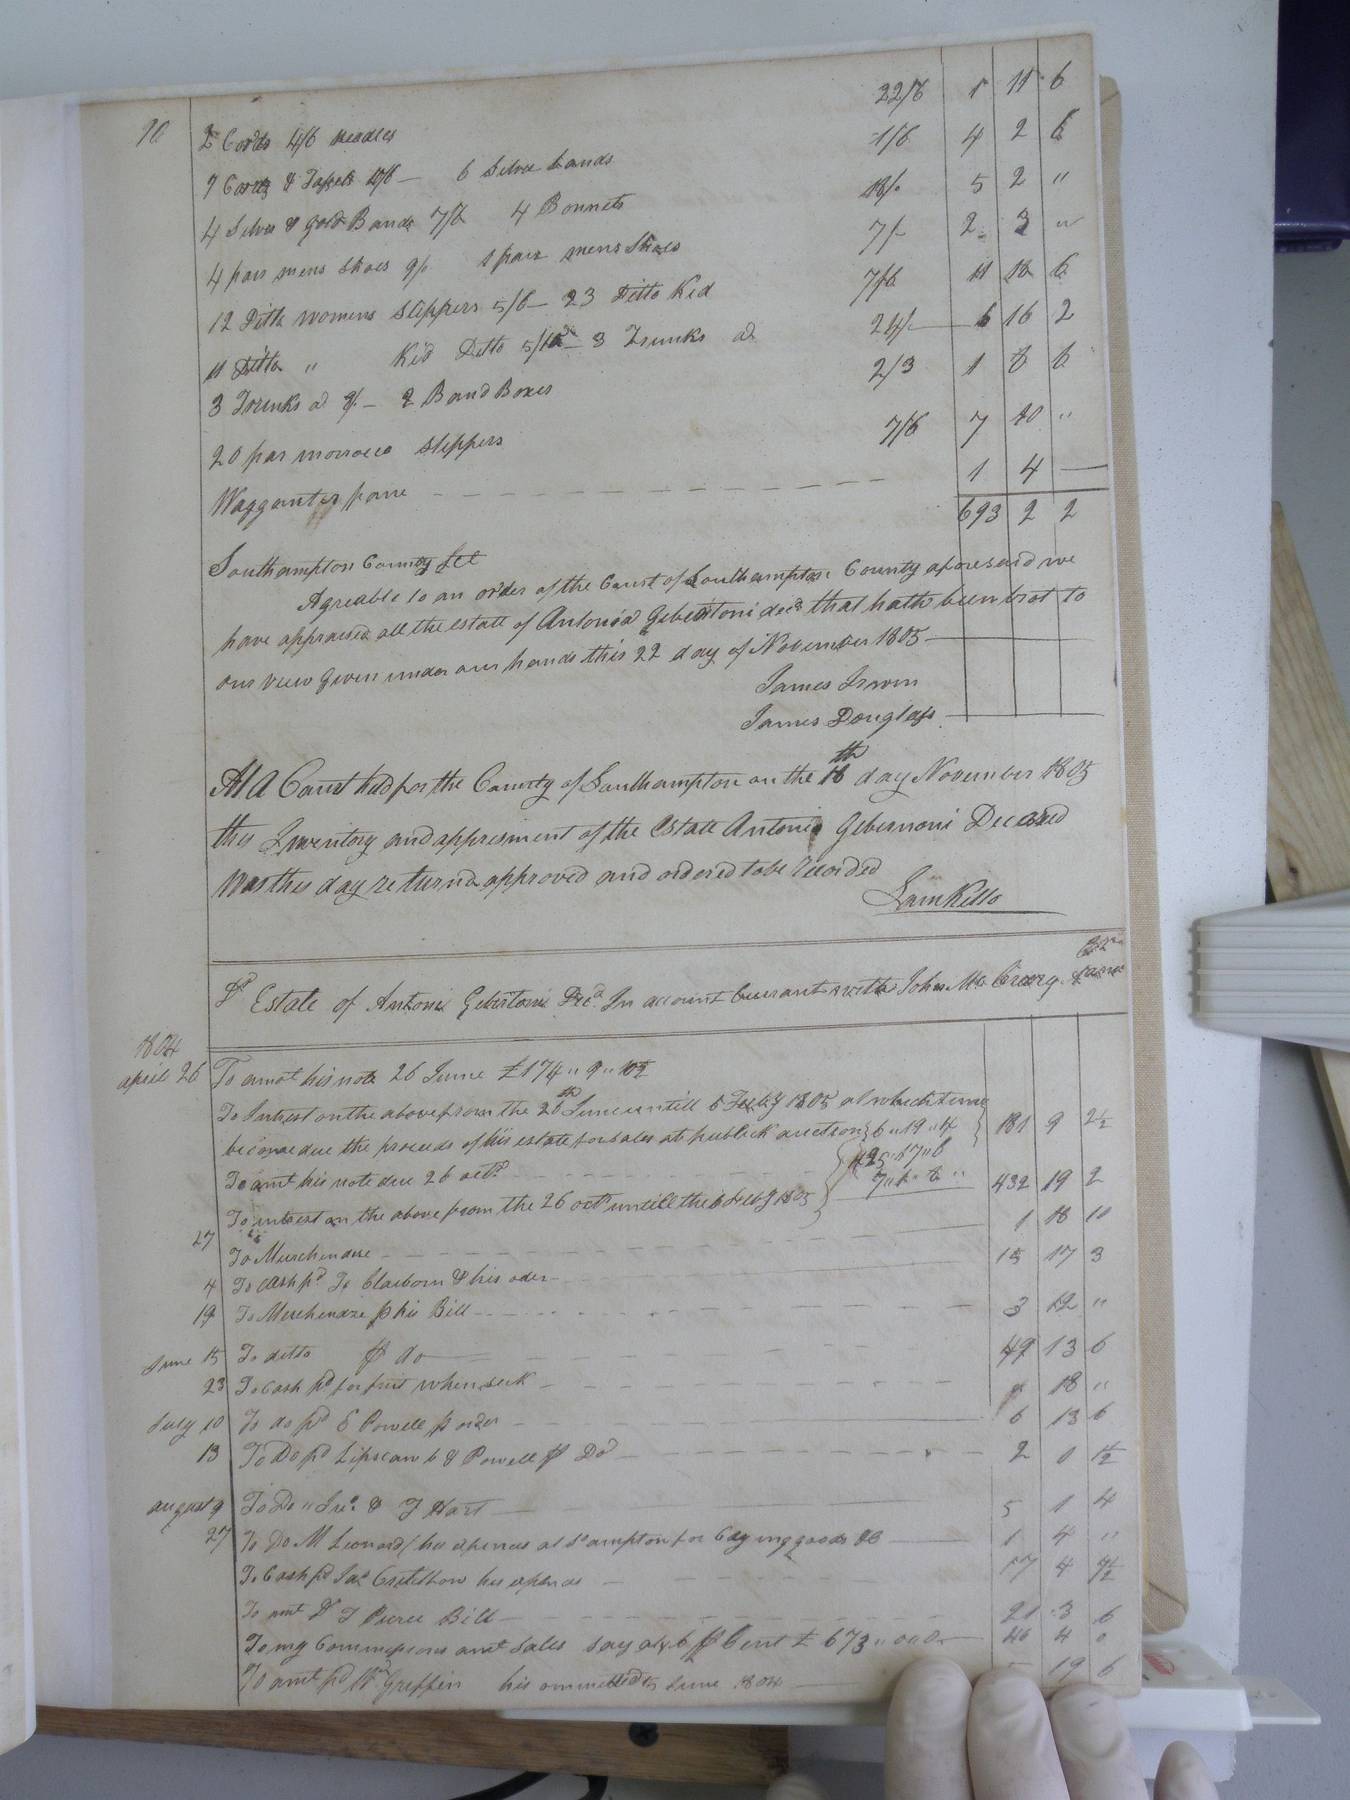 90
2 Cords 4/6 needles 22/6 1 11 6
7 Cords & Tassels 4/6 — 6 Silver bands 1/6 4 2 6
4 Silver & gold Bands 7/6 4 Bonnets 18/. 5 2 "
4 pair mens shoes 9/. 1 pair mens Shoes 7/- 2 3 "
12 Ditto womens Slippers 5/6 — 23 Ditto Kid 7/6 11 12 6
11 Ditto " Kid Ditto — 3 Trunks a 24/- 6 16 2
3 Trunks a — 2 Band Boxes 2/3 1 6
20 par morroco slippers 7/6 7 10 "
1 4 —
693 2 2
Southampton County Sct
Agreable to an order of the Court of Southampton County aforesaid we
have appraised all the estate of Antonio Gebertoni decd that hath been brot to
our view Given under our hands this 22 day of November 1805
James Irwin
James Douglass
At A Court had for the County of Southampton on the 18th day November 1805
this Inventory and appresment of the Estate Antonio Gebernoni Deceased
Was this day returnd approved and ordered to be recorded
Sam Kello
Dr Estate of Antoni Gebertoni Decd In account Currant with John
1804
april 26 To amot his note 26 June £174 " 9 "
To Interest on the above from the 26th June untill 6 Feby 1805 at which time
became due the proceeds of his estate for sales at publick auction 6 " 19 " 4 181 9 2½
To amt his note due 26 octr 425 " 17 " 6
To interest on the above from the 26 octr untill the 6 Feby 1805 7 " 432 19 2
27 To Merchendize 1 18 10
4 To Cash pd To Claiborn & his oder 15 17 3
19 To Merchendize p his Bill 3 12 "
June 15 To ditto p do 49 13 6
23 To Cash pd for fruit when seek " 18 "
July 10 To do pd E Powell p order 6 13 6
13 To Do pd Lipscomb & Powell p Do 2 0
august 9 To Do " Jno. & J Hart 5 1 4
27 To Do M Leonard his expences at S'ampton for goods &c 1 4 "
To Cash pd his expences 17 4
To amt Dr T Pierce Bill 21 3 6
To my Commissions amt sales say at 6 p Cent £ 673 " 0 " 0 4 0
To amt pd Griffin his June 1804 19 6